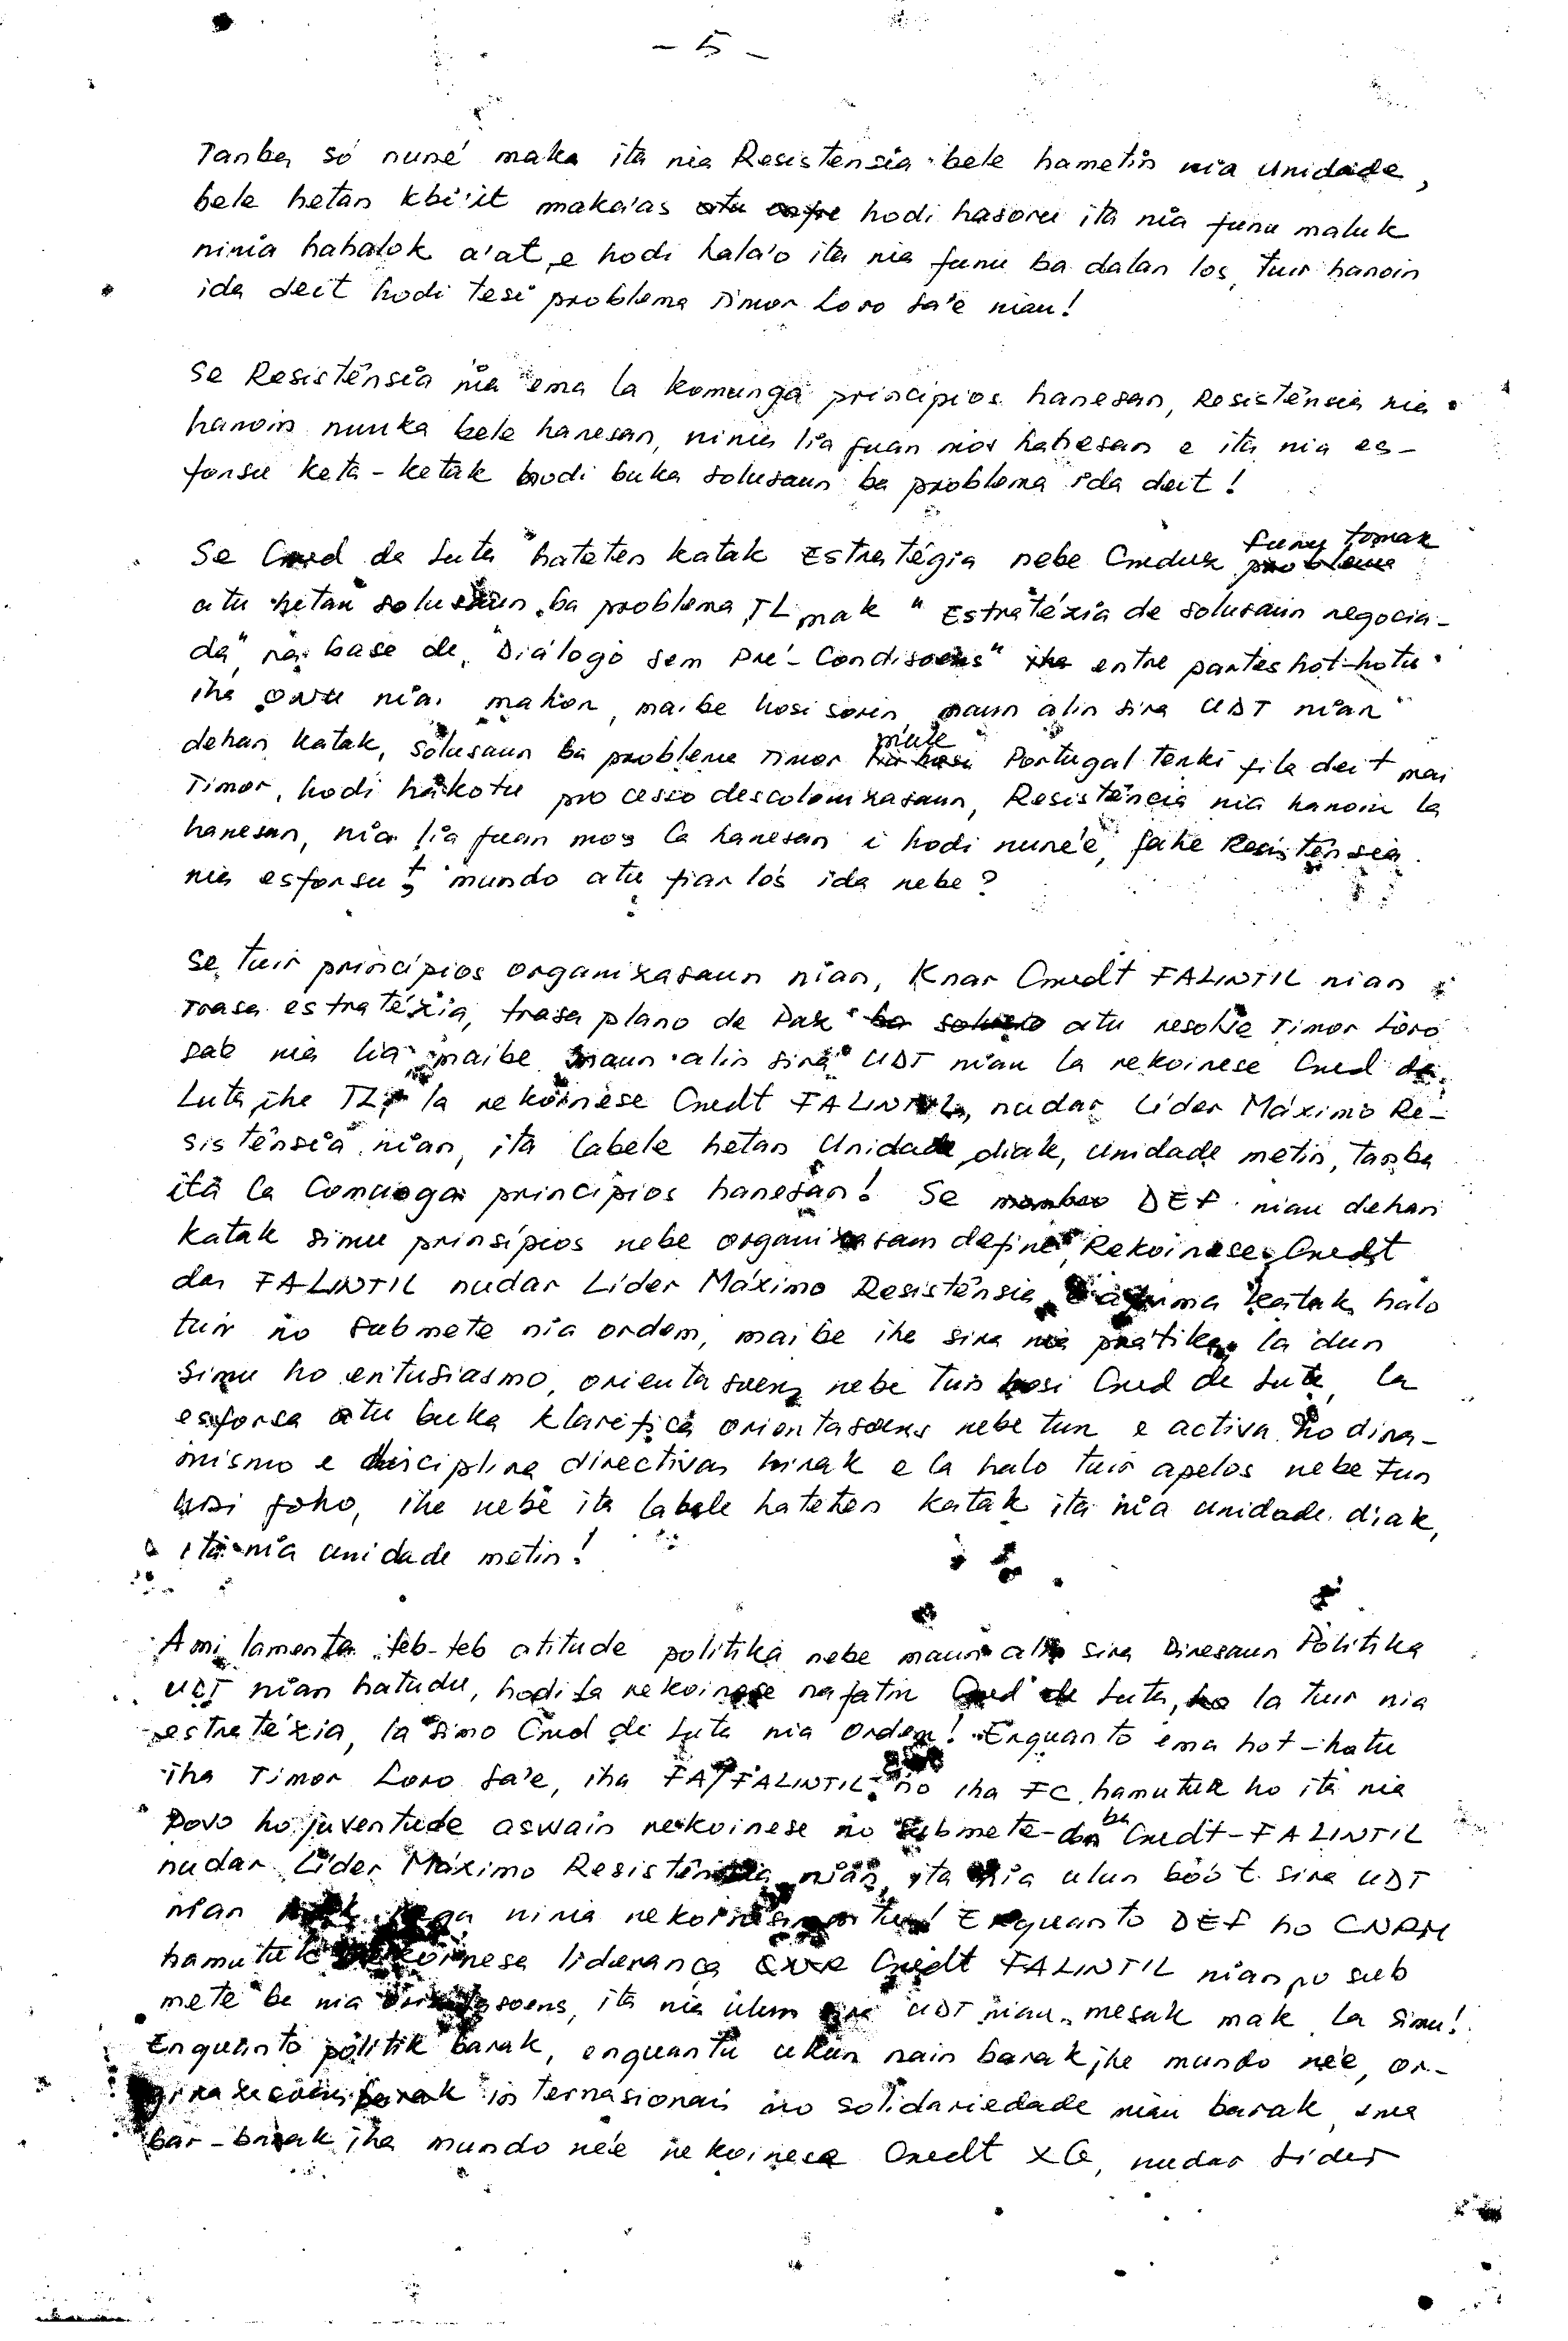 - 5 -
Tanba só nuné maka ita nia Resistensia bele hametin nia unidade,
bele hetan kbi'it maka'as atu hodi hasoru ita nia funu maluk
ninia hahalok a'at, e hodi hala'o ita nia funu ba dalan los, tuir hanoin
ida deit hodi tesi problema Timor Loro Sa'e nian!
Se Resistênsia nia ema la komunga principios hanesan, Resistênsia nia
hanoin nunka bele hanesan, ninia lia fuan mos hanesan e ita nia es-
forsu keta-ketak hodi buka solusaun ba problema ida deit!
Se Cmd da Luta hateten katak Estratégia nebe Cmduz funu tomak problema
atu hetan solusaun ba problema TL mak "Estratéxia de solusaun negocia-
da" na base de "Diálogo sem Pré-Condisoens" iha entre partes hot-hotu
iha ONU nia mahon, maibe hosi sorin, maun alin sira UDT nian
dehan katak, solusaun ba problema Timor mak Portugal tenki fila deit mai
Timor, hodi hakotu processo descolonixasaun, Resistência nia hanoin la
hanesan, nia lia fuan mos la hanesan i hodi nune'e, fahe Resistênsia
nia esforsu; mundo atu fiar los ida nebe?
Se, tuir princípios organixasaun nian, knar Cmdt FALINTIL nian
trasa estratéxia, trasa plano de Pax ba atu resolve Timor Loro
sae nia lia maibe maun alin sira UDT nian la rekoinese Cmd da
Luta, iha TL, la rekoinese Cmdt FALINTIL, nudar Líder Máximo Re-
sistênsia nian, ita labele hetan Unidade diak, unidade metin, tanba
ita la Comunga principios hanesan! Se membro DEF nian dehan
katak simu prinsípios nebe organixasaun define, Rekoinese Cmdt
das FALINTIL nudar Líder Máximo Resistênsia, afirma katak halo
tuir no submete nia ordem, maibe iha sira nia prátika, la dun
simu ho entusiasmo, orientasoens nebe tun hosi Cmd de Luta, la
esforsa atu buka klarifica orientasoens nebe tun e activa ho dina-
mismo e disciplina directivas hirak e la halo tuir apelos nebe tun
husi foho, iha nebe ita labele hateten katak ita nia unidade diak,
ita nia unidade metin!
Ami lamenta teb-teb atitude politika nebe maun alin sira Diresaun Politika
UDT nian hatudu, hodi la rekoinese nafatin Cmd de Luta, ho la tuir nia
estratéxia, la simo Cmd de Luta nia Ordem! Enquanto ema hot-hotu
iha Timor Loro Sa'e, iha FA/FALINTIL, no iha FC hamutuk ho ita nia
Povo ho juventude aswain rekoinese no submete-an ba Cmdt-FALINTIL
nudar Líder Máximo Resistênsia nian, ita nia ulun boót sira UDT
nian mak nega ninia rekoinesimentu! Enquanto DEF ho CNRM
hamutuk rekoinese liderança Cmdt FALINTIL nian no sub
mete ba nia orientasoens, ita nia ulun sira UDT nian mesak mak la simu!
Enquanto politik barak, enquantu ukun nain barak, iha mundo ne'e, or-
ganixasoens barak internasionais no solidariedade nian barak, ema
bar-barak iha mundo ne'e rekoinese Cmdt XG, nudar Líder